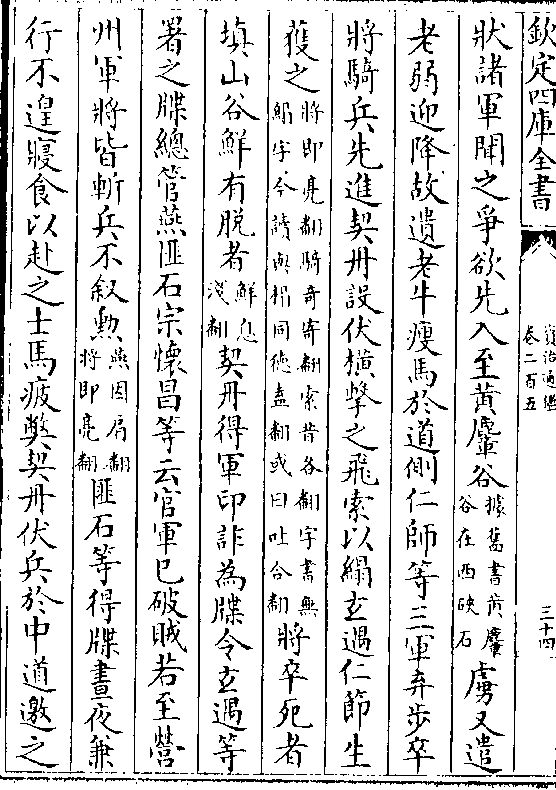 欽定四庫全書
資治通鑑
卷二百五
三十四
狀諸軍聞之爭欲先入至黄麞谷據舊書黄麞谷在西硤石虜又遣
老弱迎降故遺老牛瘦馬於道側仁師等三軍弃步卒
將騎兵先進契丹設伏横擊之飛索以緆玄遇仁節生
獲之將即亮翻騎奇寄翻索昔各翻字書無緆字今讀與榻同德盍翻或曰吐合翻將卒死者
填山谷鮮有脱者鮮息淺翻契丹得軍印詐為牒令玄遇等
署之牒總管燕匪石宗懐昌等云官軍已破賊若至營
州軍將皆斬兵不叙勲燕因肩翻將即亮翻匪石等得牒晝夜兼
行不遑寢食以赴之士馬疲弊契丹伏兵於中道邀之